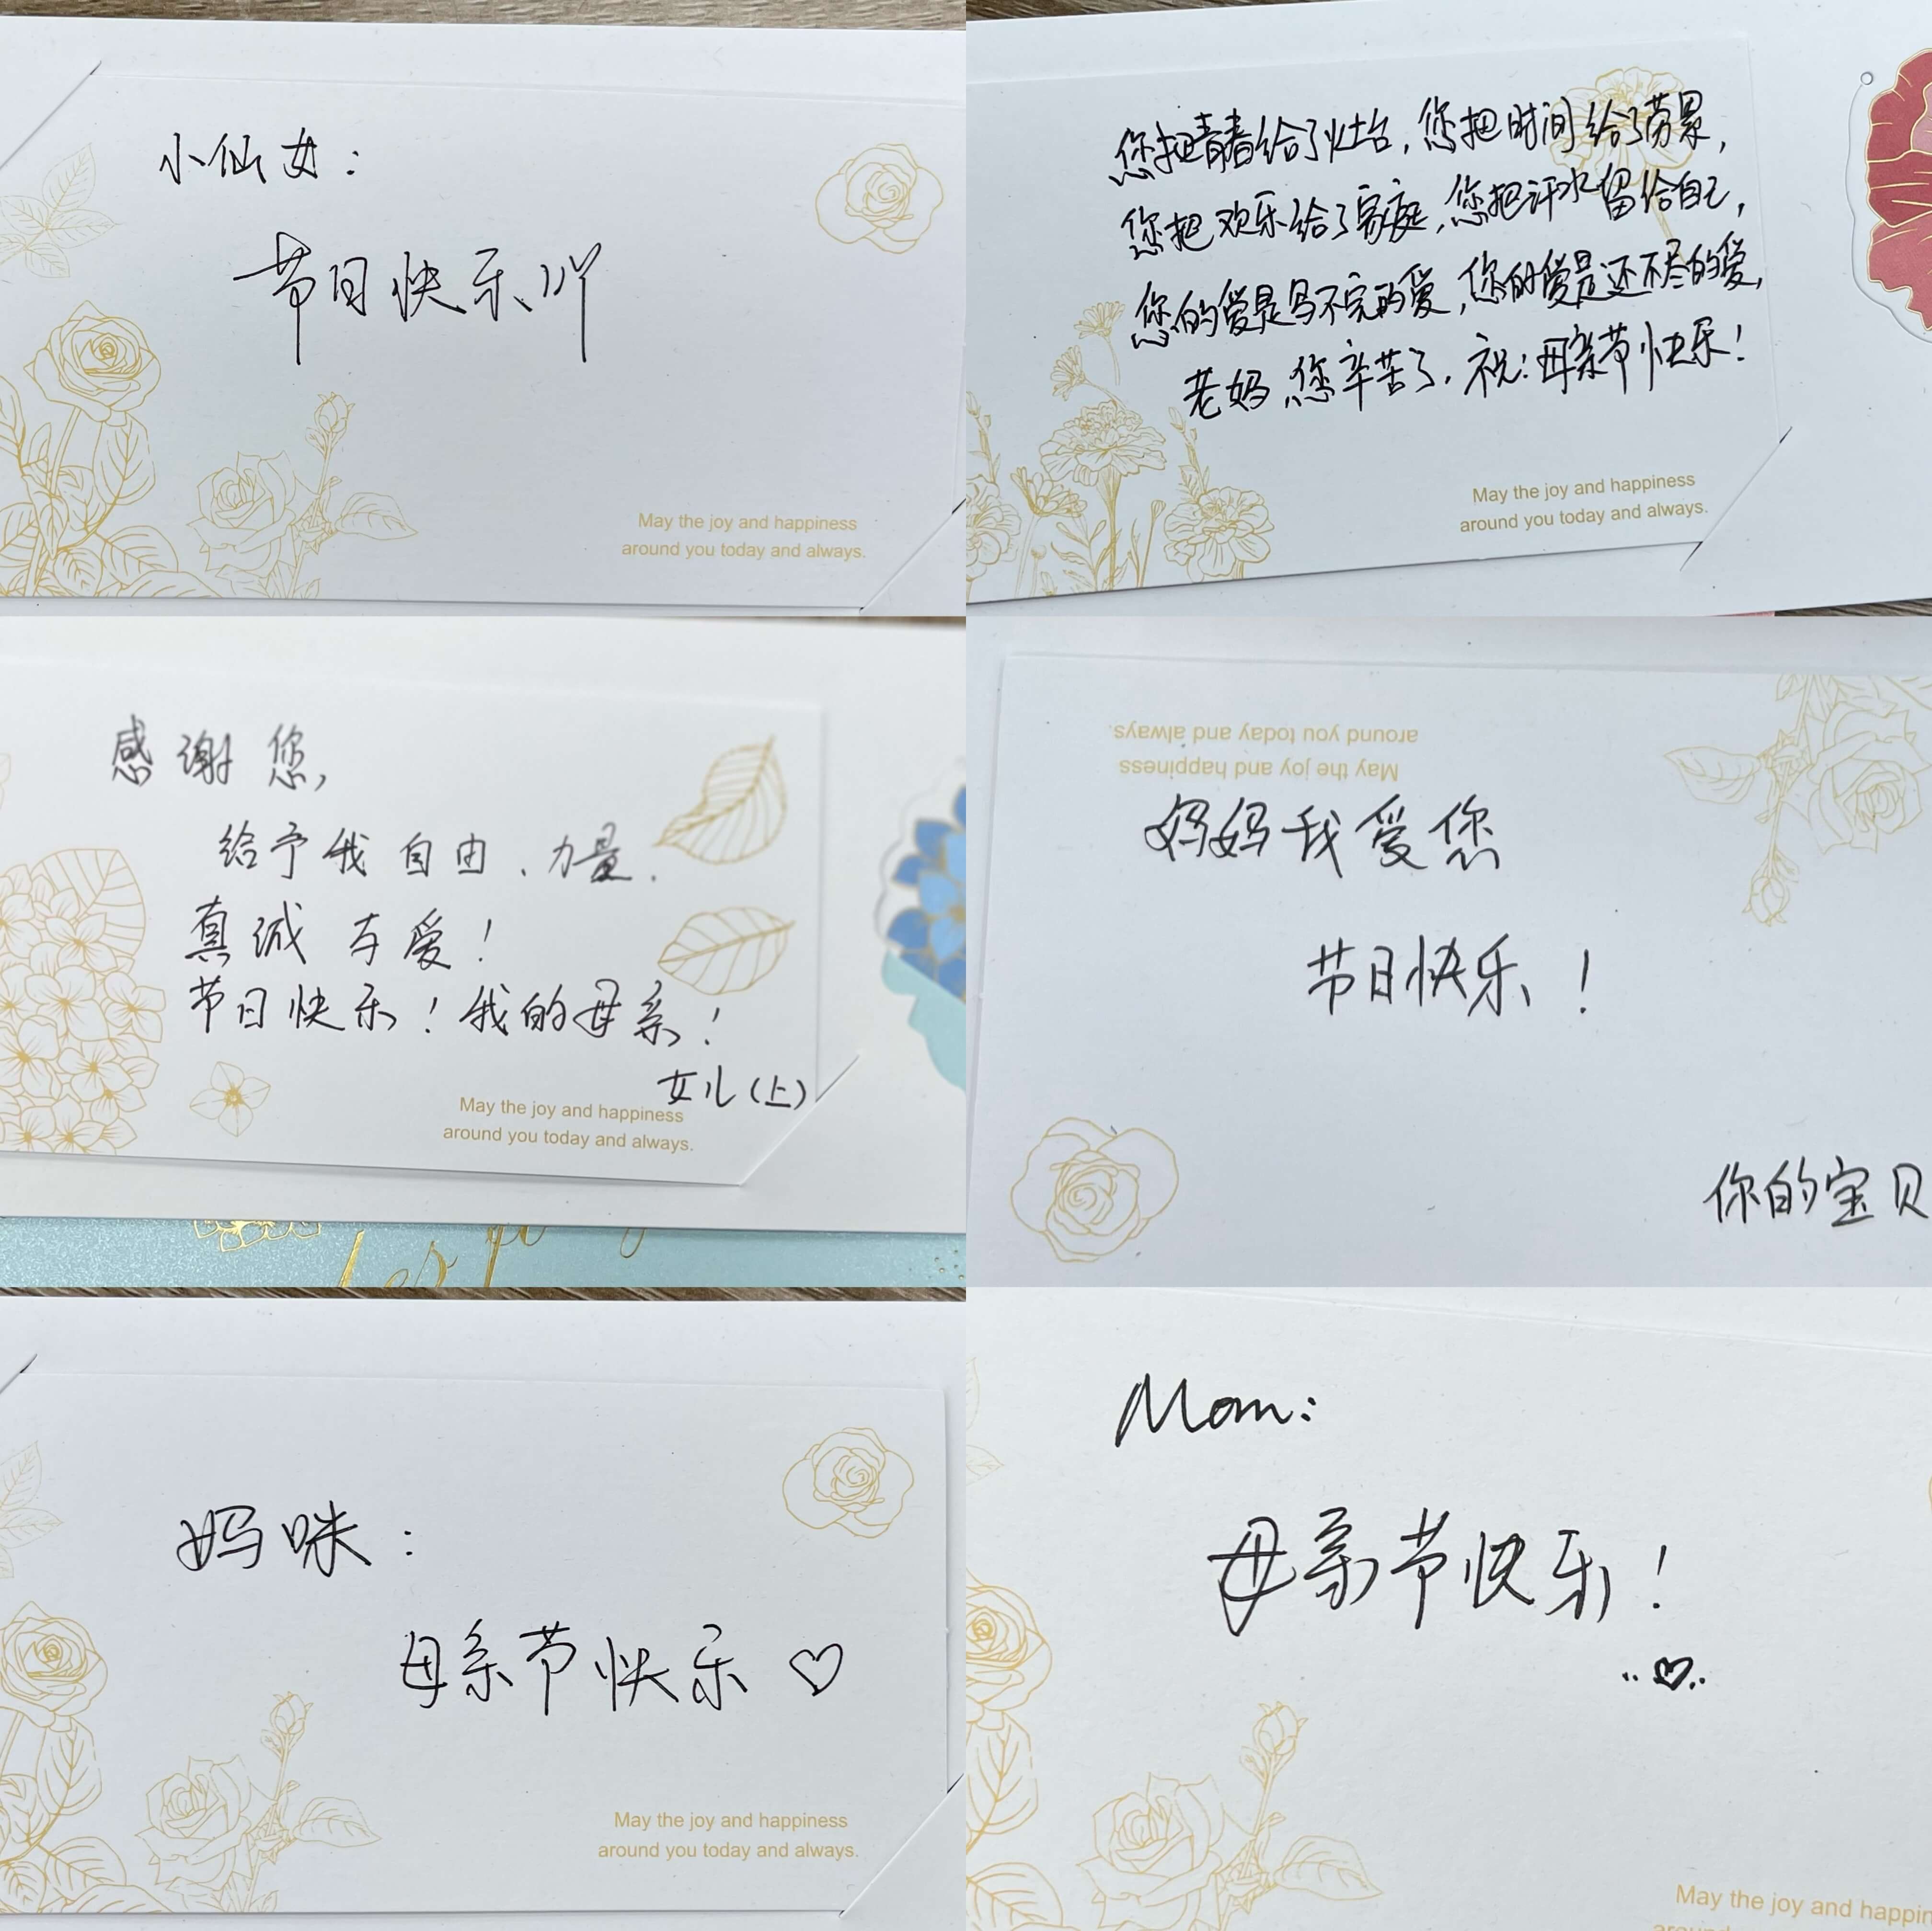 小仙女：
节日快乐吖
May the joy and happiness
around you today and always.
您把青春给了灶台，您把时间给了劳累，
您把欢乐给了家庭，您把汗水留给自己，
您的爱是写不完的爱，您的爱是还不尽的爱，
老妈您辛苦了，祝：母亲节快乐！
May the joy and happiness
around you today and always.
感谢您，
给予我自由、力量、
真诚与爱！
节日快乐！我的母亲！
女儿（上）
May the joy and happiness
around you today and always.
May the joy and happiness
around you today and always.
妈妈我爱您
节日快乐！
你的宝贝
妈咪：
母亲节快乐♡
May the joy and happiness
around you today and always.
Mom：
母亲节快乐！
May the joy and happin